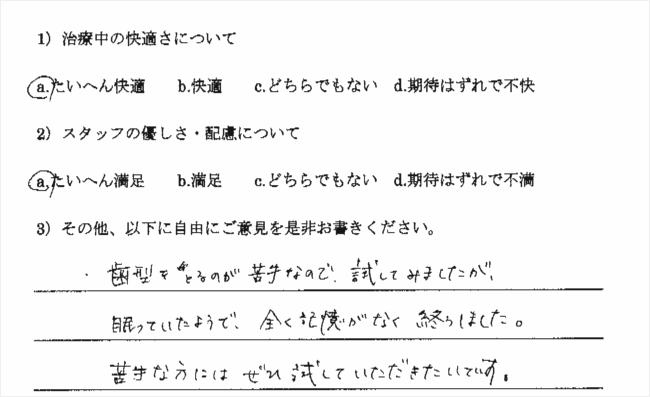 1) 治療中の快適さについて
a.たいへん快適 b.快適 c.どちらでもない d.期待はずれで不快
2) スタッフの優しさ・配慮について
a.たいへん満足 b.満足 c.どちらでもない d.期待はずれで不満
3) その他、以下に自由にご意見を是非お書きください。
・歯型をとるのが苦手なので、試してみましたが、
眠っていたようで、全く記憶がなく終りました。
苦手な方にはぜひ試していただきたいです。